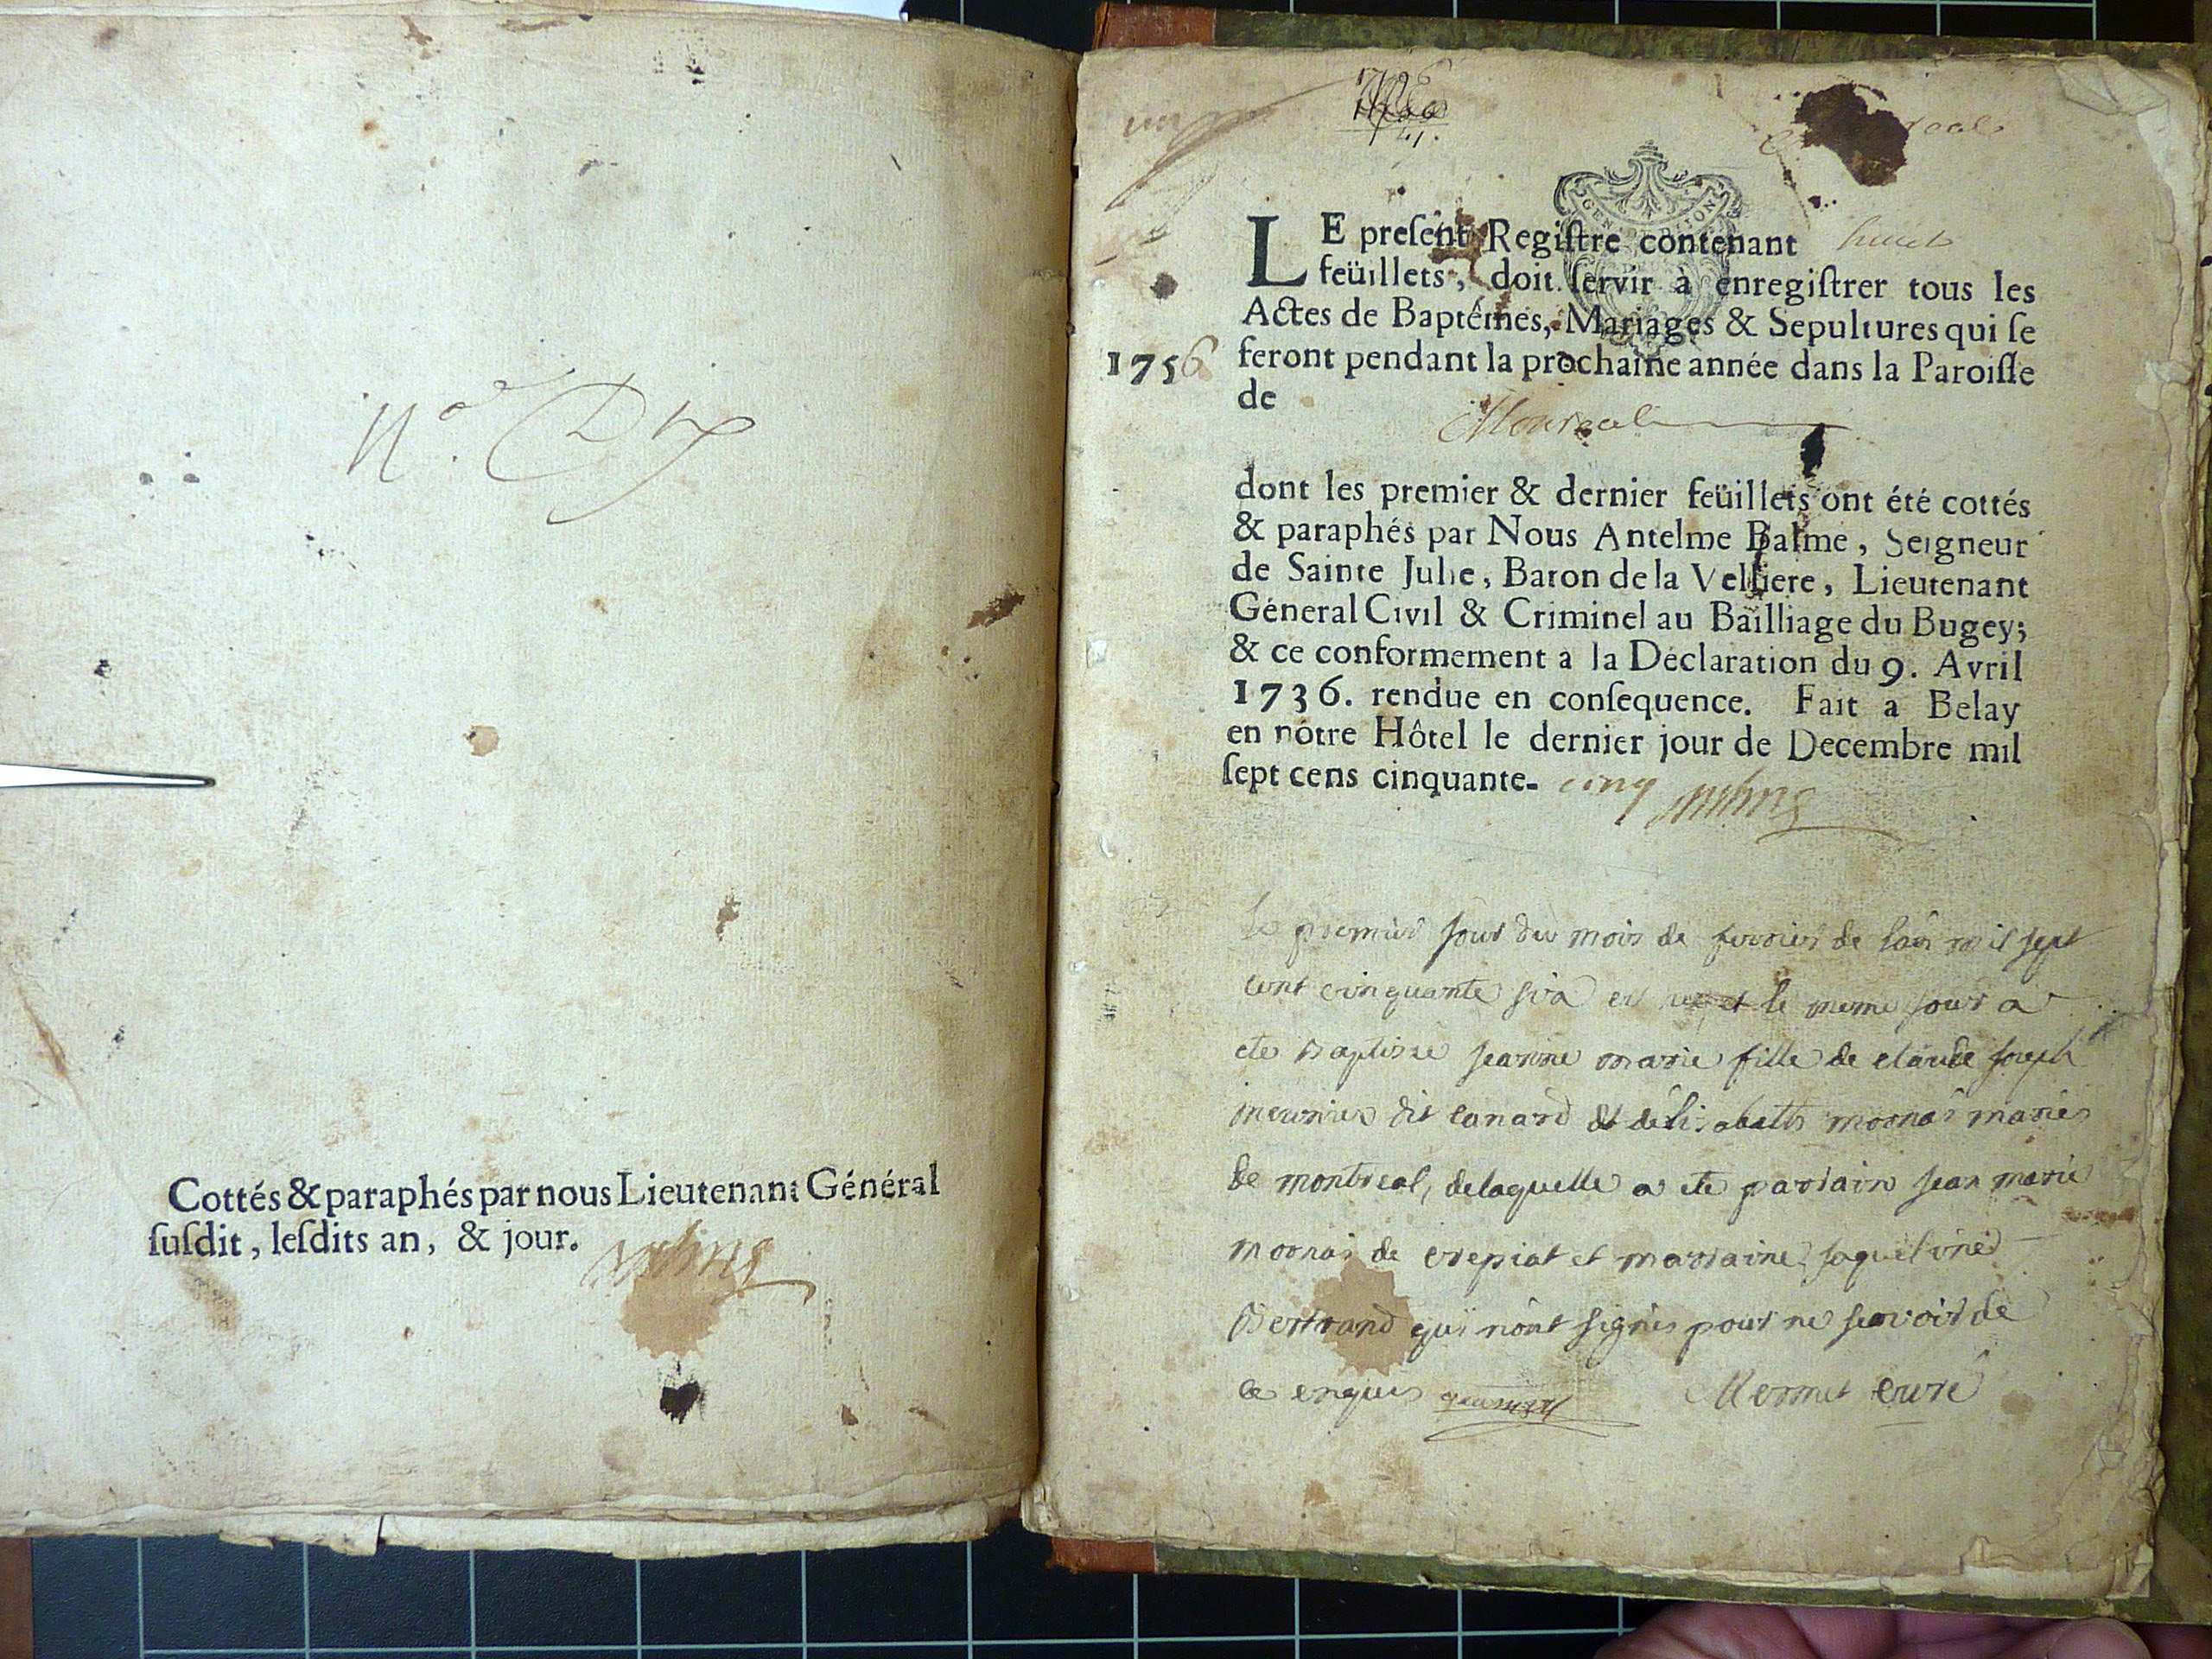 N.º Dix
Cottés & paraphés par nous Lieutenant Général
ſuſdit, leſdits an, & jour.
1756
41.
GEN DIJON
LE preſent Regiſtre contenant huict
feüillets, doit ſervir à enregiſtrer tous les
Actes de Baptêmes, Mariages & Sepultures qui ſe
1756 feront pendant la prochaine année dans la Paroiſſe
de Montreal
dont les premier & dernier feüillets ont été cottés
& paraphés par Nous Antelme Balme, Seigneur
de Sainte Julie, Baron de la Velliere, Lieutenant
Géneral Civil & Criminel au Bailliage du Bugey;
& ce conformement a la Déclaration du 9. Avril
1736. rendue en conſequence. Fait a Belay
en nótre Hôtel le dernier jour de Decembre mil
ſept cens cinquante- cinq
le premier jour du mois de fevrier de lan mil sept
cent cinquante six et le meme jour a
ete Baptisee jeanne marie fille de claude joseph
meunier dit canard et delisabeth mornai mariés
de montreal, de laquelle a ete parrain jean marie
mornai de crepiat et marraine jaqueline
Bertrand qui nont signés pour ne scavoir de
ce enquis Mermet curé